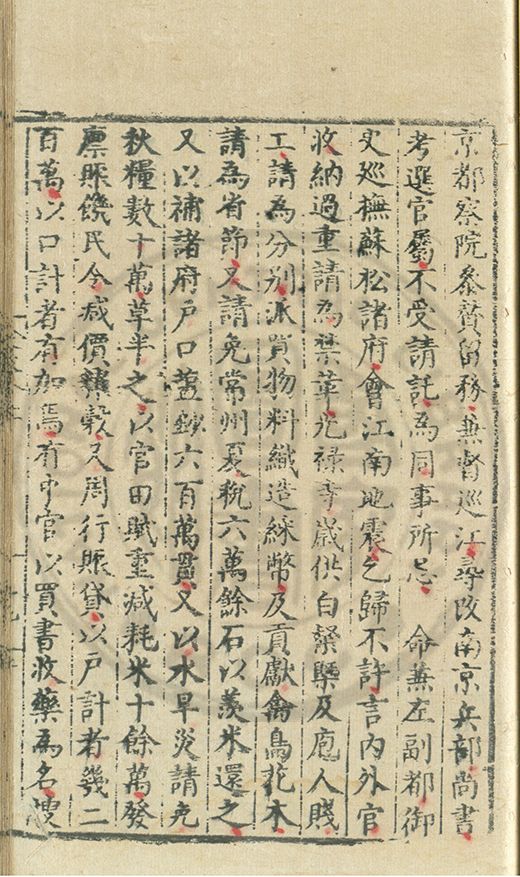 京都察院叅贊留務兼督巡江尋改南京兵部尚書
考選官屬不受請託為同事所忌 命兼左副都御
史巡撫蘇松諸府會江南地震乞歸不許言內外官
收納過重請為禁革光禄寺歲供白粲槩及庖人賤
工請為分别派買物料織造綵幣及貢獻禽鳥花木
請為省節又請免常州夏稅六萬餘石以羨米還之
又以補諸府户口鈔六百萬貫又以水旱災請免
秋糧數十萬草半之以官田賦重減耗米十餘萬發
廪賑饑民令减價糶榖又周行賑貸以户計者幾二
百萬以口計者有加焉有中官以買書收藥為名